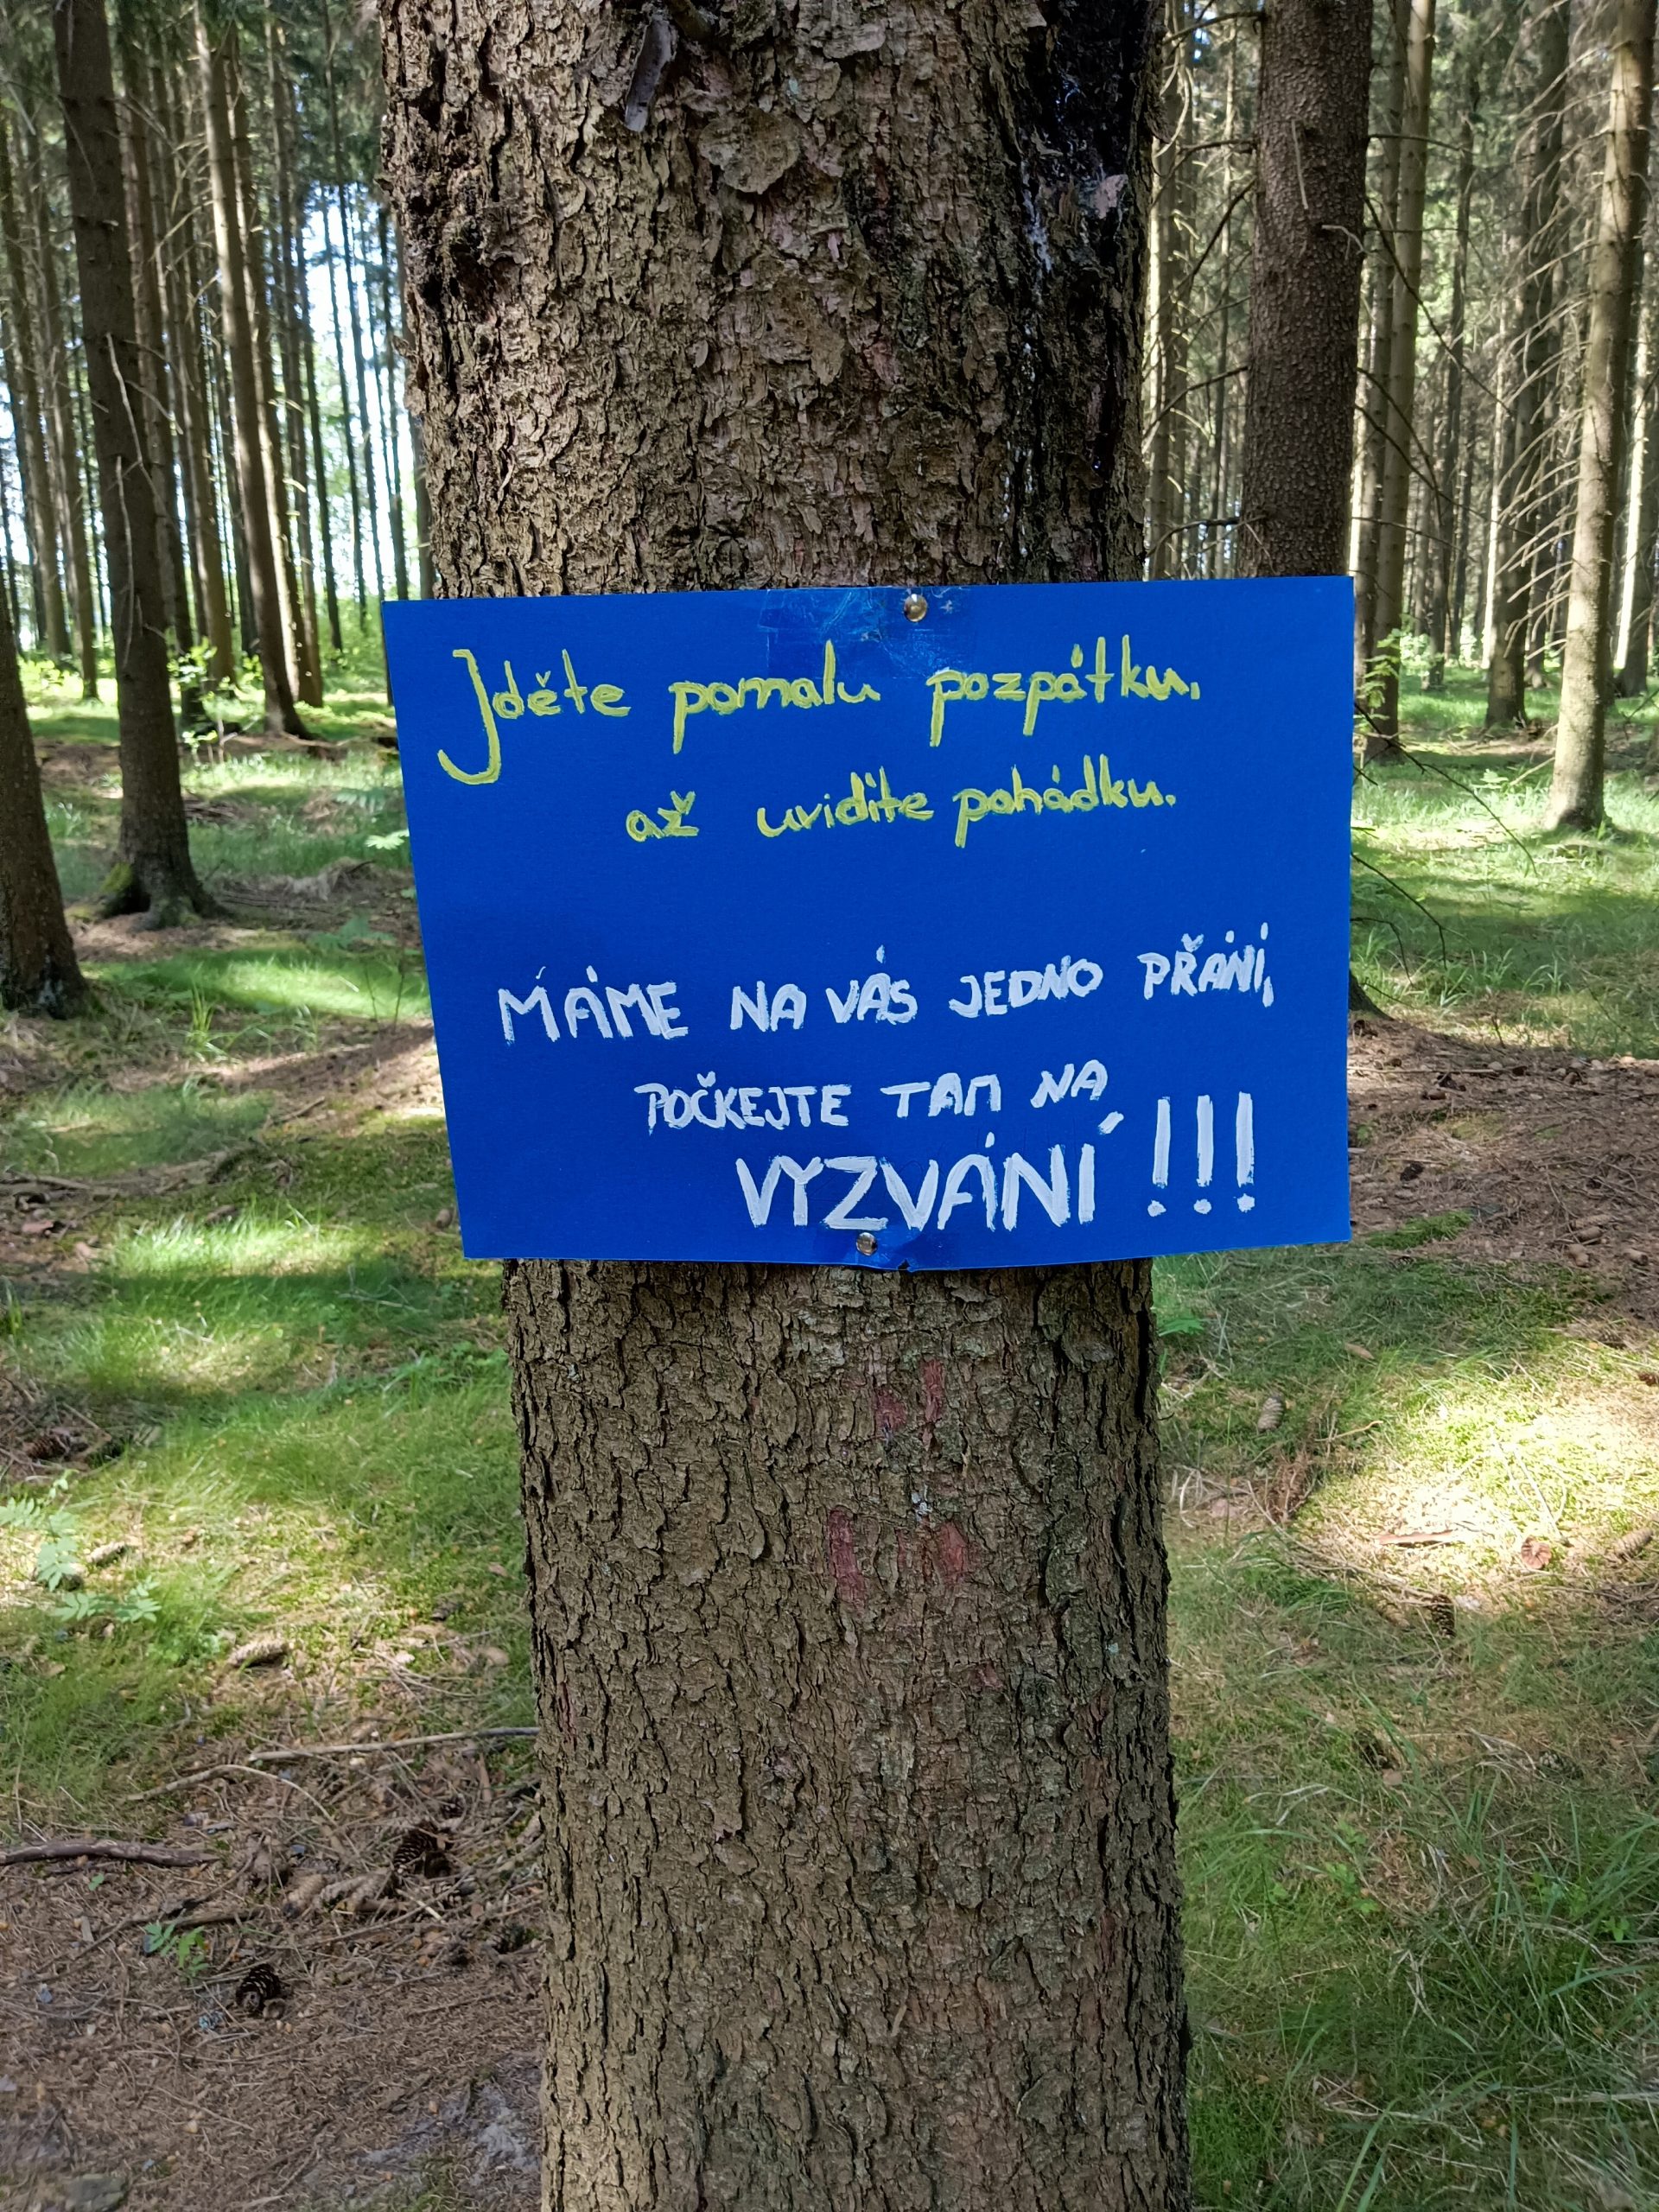 Jděte pomalu pozpátku,
až uvidíte pohádku.
MÁME NA VÁS JEDNO PŘÁNÍ,
POČKEJTE TAM NA
VYZVÁNÍ!!!